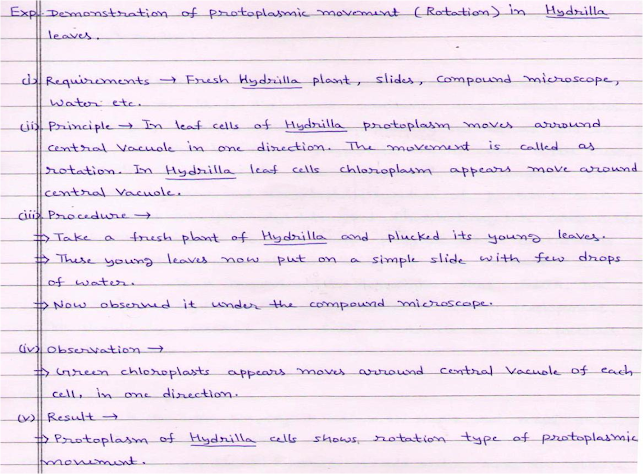 Exp. Demonstration of protoplasmic movement (Rotation) in Hydrilla
leaves.
(i) Requirements → Fresh Hydrilla plant, slides, compound microscope,
Water etc.
(ii) Principle → In leaf cells of Hydrilla protoplasm moves arround
central vacuole in one direction. The movement is called as
rotation. In Hydrilla leaf cells chloroplasm appears move around
central vacuole.
(iii) Procedure →
⇒ Take a fresh plant of Hydrilla and plucked its young leaves.
⇒ These young leaves now put on a simple slide with few drops
of water.
⇒ Now observed it under the compound microscope.
(iv) Observation →
⇒ Green chloroplasts appears moves arround central vacuole of each
cell, in one direction.
(v) Result →
⇒ Protoplasm of Hydrilla cells shows rotation type of protoplasmic
movement.